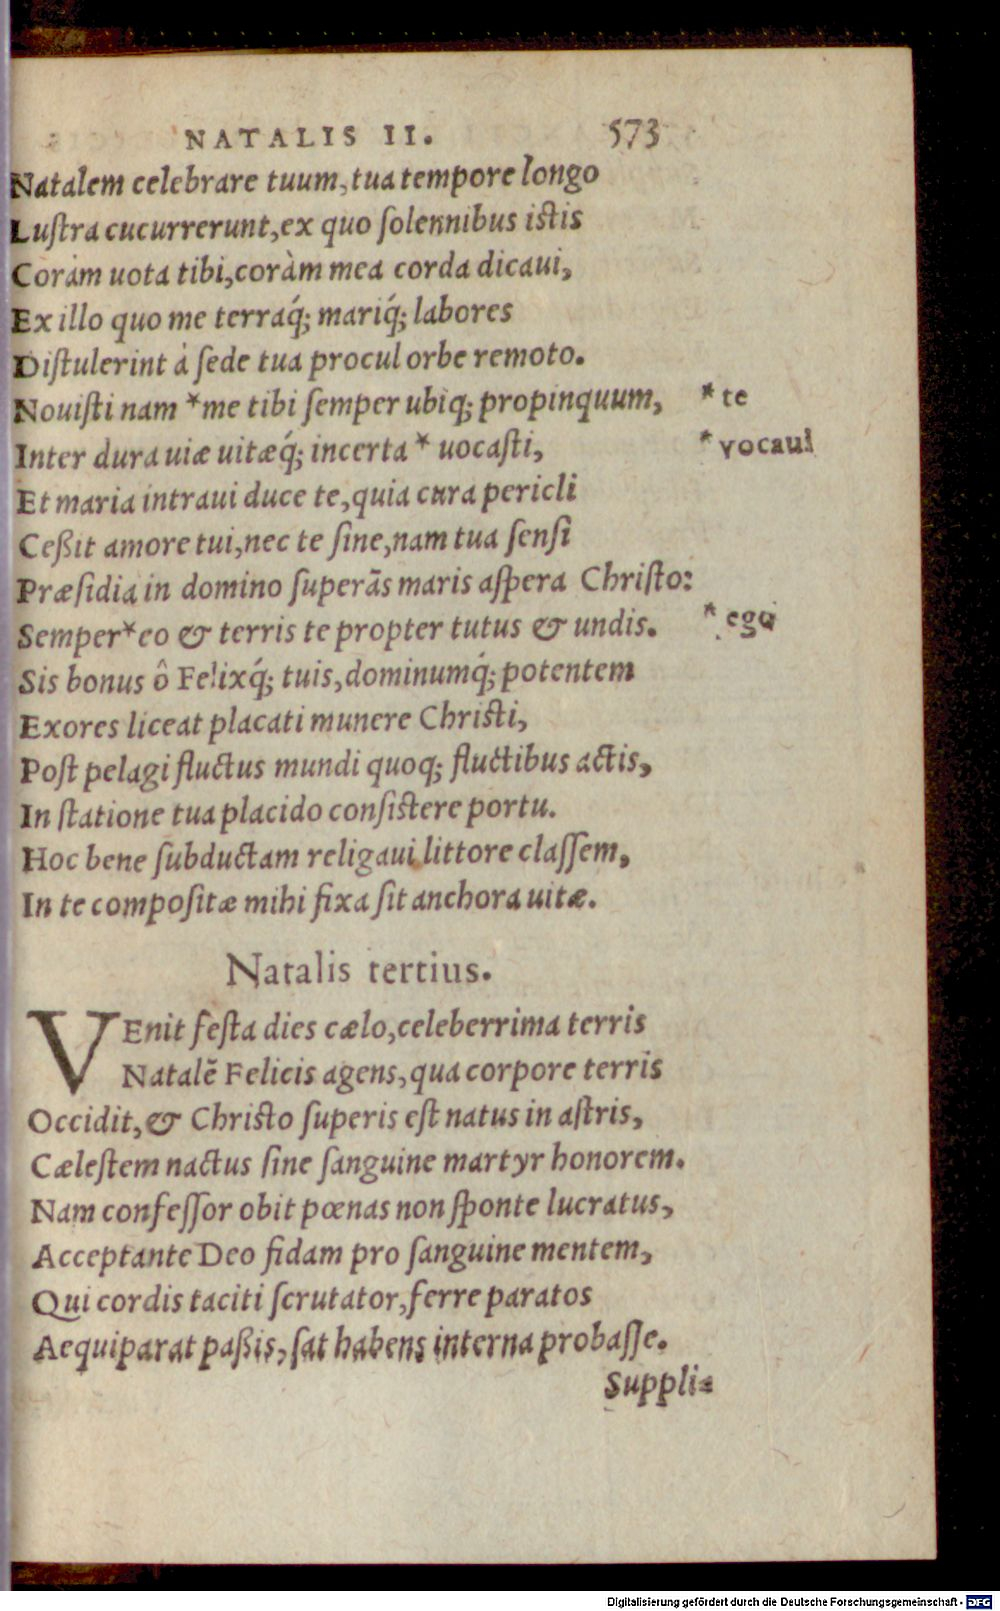 NATALIS II. 573
Natalem celebrare tuum, tua tempore longo
Lustra cucurrerunt, ex quo solennibus istis
Coràm uota tibi, coràm mea corda dicaui,
Ex illo quo me terraq́; mariq́; labores
Distulerint à sede tua procul orbe remoto.
Nouisti nam *me tibi semper ubiq; propinquum, *te
Inter dura uiæ uitæq́; incerta* uocasti, *vocaui
Et maria intraui duce te, quia cura pericli
Ceßit amore tui, nec te sine, nam tua sensi
Præsidia in domino superãs maris aspera Christo:
Semper*eo & terris te propter tutus & undis. *ego
Sis bonus ô Felixq́; tuis, dominumq́; potentem
Exores liceat placati munere Christi,
Post pelagi fluctus mundi quoq; fluctibus actis,
In statione tua placido consistere portu.
Hoc bene subductam religaui littore classem,
In te compositæ mihi fixa sit anchora uitæ.
Natalis tertius.
VEnit festa dies cælo, celeberrima terris
Natalẽ Felicis agens, qua corpore terris
Occidit, & Christo superis est natus in astris,
Cælestem nactus sine sanguine martyr honorem.
Nam confessor obit pœnas non sponte lucratus,
Acceptante Deo fidam pro sanguine mentem,
Qui cordis taciti scrutator, ferre paratos
Aequiparat paßis, sat habens interna probasse.
Suppli=
Digitalisierung gefördert durch die Deutsche Forschungsgemeinschaft - DFG